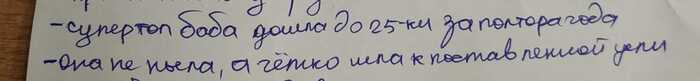 -супертоп баба дошла до 25-ки за полтора года
-она не ныла, а чётко шла к поставленной цели